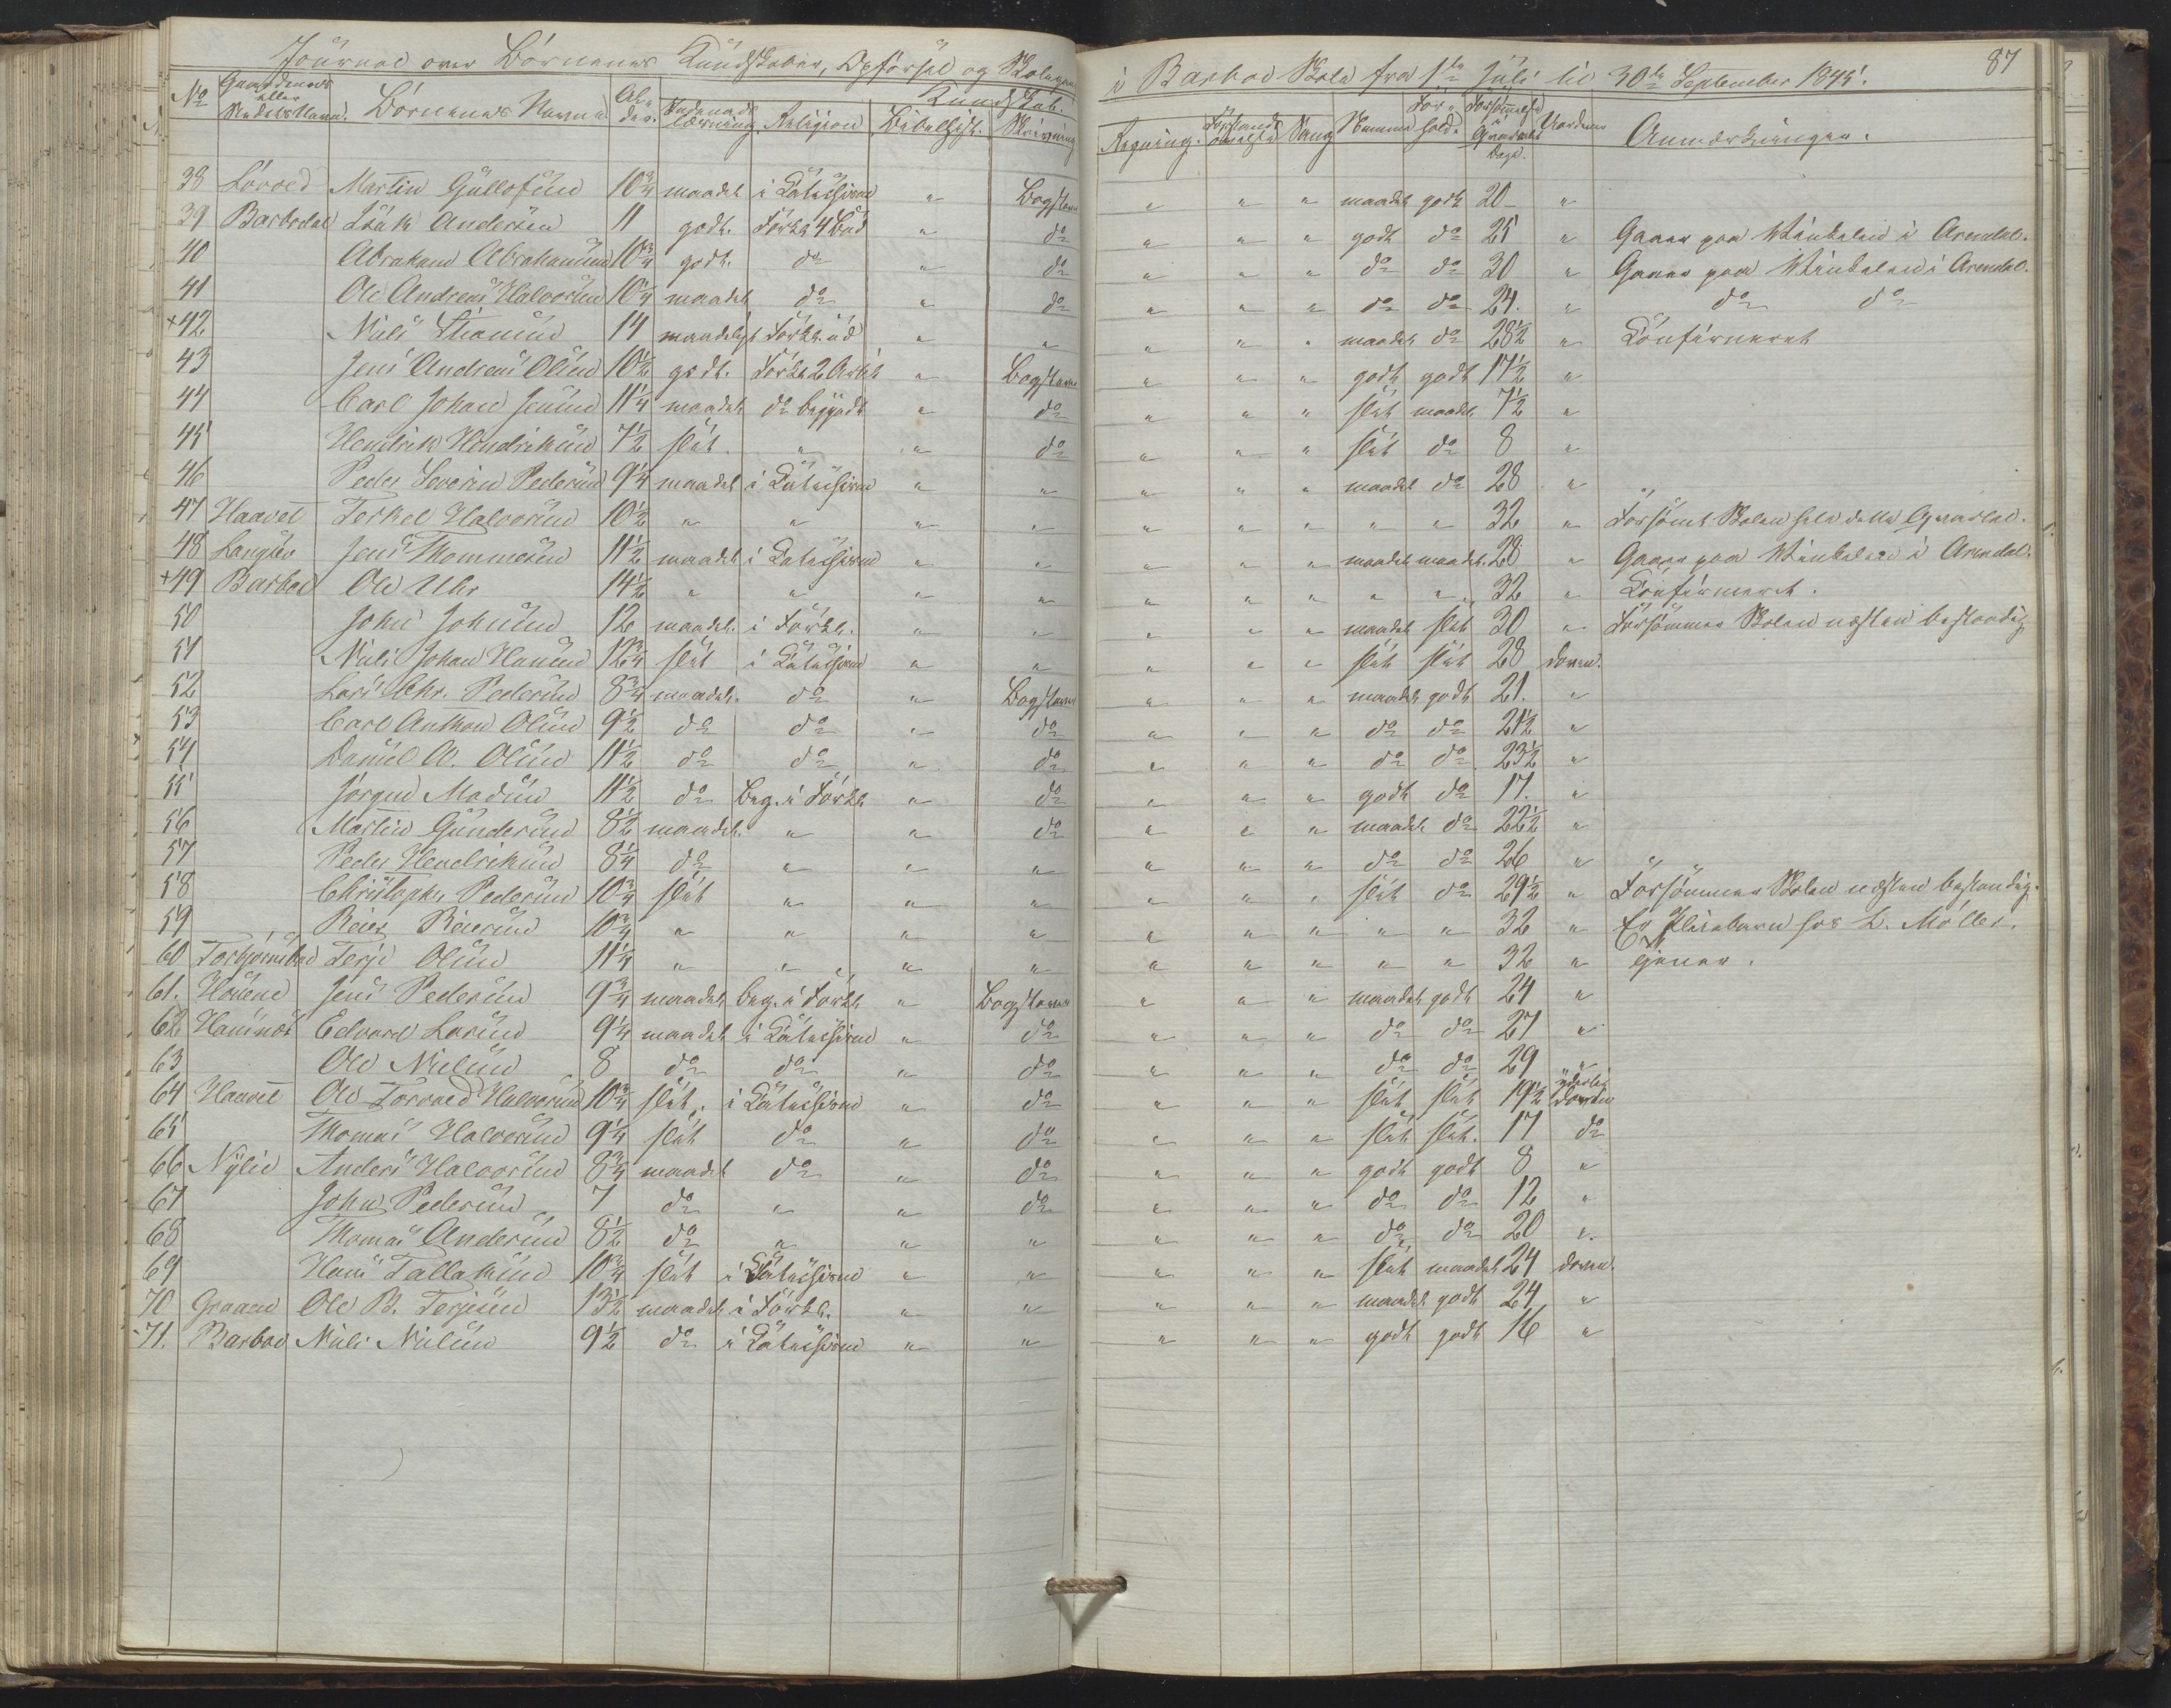 Journal over Börnenes Kundskaber, Opförsel og Skolegang i Barboe Skole fra 1ste Juli til 30te September 1845. 87
No Gaardenes eller Stedets Navn. Börnenes Navne Al- der. Indenads læsning Religion Bibelhist. Skrivning Kundskab. Regning. Forstands övelse Sang Nemme For- hold. Forsömmelse i Qvartalet Dage. Anmærkninger.
38 Lövoed Martin Gullofsen 10¾ maadel i Katechismen " Bogstaver " " " maadel godt 20 "
39 Barbodal Isäk Andersen 11 godt. Forkl 4 Bud " do " " " godt do 25 " Gaaer paa Winkelen i Arendal.
40 Abraham Abrahamsen 10¾ godt. do " do " " " do do 30 " Gaaer paa Winkelen i Arendal.
41 Ole Andreas Halvorsen 10¼ maadel do " do " " " do do 24. " do do
+42 Niels 14 maadeligt Forkl. ud " " " " " maadel do 28½ " Confirmeret
43 Jens Andreas Olsen 10½ godt. Forkl 2 Art " Bogstaver " " " godt godt 17½ "
44 Carl Johan Jensen 11¼ maadel do begyndt " do " " " slet maadel 7½ "
45 Hendrik Hendriksen 7½ slet. " " do " " " slet do 8 "
46 Peder Severin Pedersen 9¼ maadel i Katechismen " " " " " maadel do 28 "
47 Haavet Terkel Halvorsen 10½ " " " " " " " " " 32 " Forsömt Skolen hele dette Qvartal.
48 Langsev Jens Thommesen 11½ maadel i Katechismen " " " " " maadel maadel. 28 " Gaaer paa Winkelen i Arendal.
+49 Barboe Ole Uhr 14½ " " " " " " " " " 32 " Confirmeret.
50 John Johnsen 12 maadel. i Forkl. " " " " " maadel slet 30 " Forsömmer Skolen næsten bestandig
51 Niels Johan Hansen 12¾ slet i Katechismen " " " " " slet slet 28 doven.
52 Lars Chr. Pedersen 8¾ maadel. do " Bogstaver " " " maadel godt 21. "
53 Carl Anthon Olsen 9½ do do " do " " " do do 21½ "
54 Daniel A. Olsen 11½ do do " do " " " do do 23½ "
55 Jörgen Madsen 11½ do Beg. i Forkl " do " " " godt do 17. "
56 Martin Gundersen 8½ maadel. " " do " " " maadel do 22½ "
57 Peder Hendriksen 8¼ do " " " " " " do do 26 "
58 Christoph. Pedersen 10¾ slet " " " " " " slet do 29½ " Forsömmer Skolen næsten bestandig.
59 Reier Reiersen 10¾ " " " " " " " " " 32 " Er Pleiebarn hos L. Möller.
60 Torbjörnsbo Terje Olsen 11¼ " " " " " " " " " 32 " tjener.
61. Houene Jens Pedersen 9¾ maadel beg. i Forkl " Bogstaver " " " maadel godt 24 "
62 Hansnöt Edvard Larsen 9¼ maadel i Katechismen " do " " " do do 27 "
63 Ole Nielsen 8 do do " do " " " do do 29 "
64 Haavet Ole Torvald Halvorsen 10¾ slet. i Katechismen " do " " " slet slet 19½ yderlig doven
65 Thomas Halvorsen 9¼ slet do " do " " " slet slet. 17 do
66 Nylie Anders Halvorsen 8¾ maadel do " do " " " godt godt 8 "
67 John Pedersen 7 do " " do " " " do do 12 "
68 Thomas Andersen 8½ do " " " " " " do do 20 "
69 Hans Tallaksen 10¾ slet i Katechismen " " " " " slet maadel 24 doven.
70 Graaene Ole B. Terjesen 13½ maadel i Forkl. " " " " " maadel godt 24 "
71. Barboe Niels Nielsen 9½ do i Katechismen " " " " " godt godt 16 "